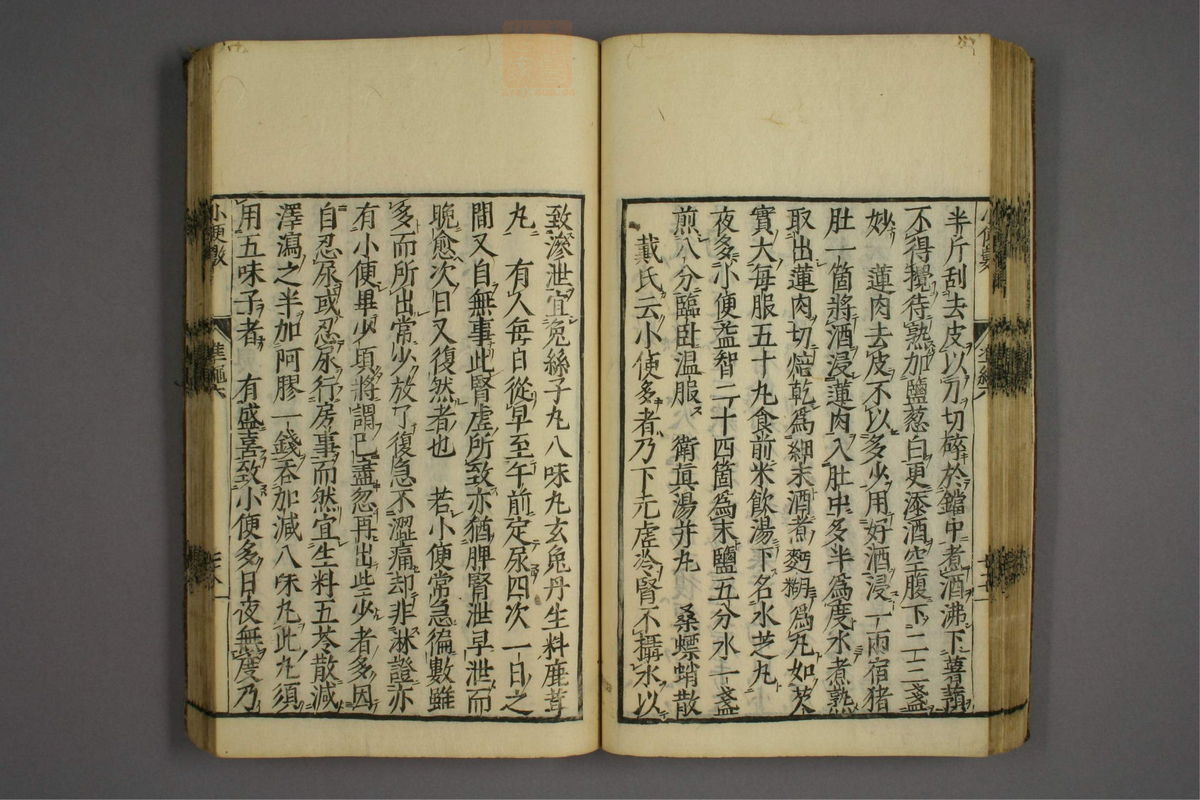 半斤刮去皮以刀切碎於鐺中煮酒沸下薯蕷
不得攪待熟加鹽葱白更添酒空腹下二三盞
妙　蓮肉去皮不以多少用好酒浸一兩宿猪
肚一箇將酒浸蓮肉入肚中多半為度水煮熟
取出蓮肉切焙乾為細末酒煮麪糊為丸如芡
實大每服五十丸食前米飲湯下名水芝丸
夜多小便益智二十四箇為末鹽五分水一盞
煎八分臨臥温服　衛真湯并丸　桑螵蛸散
戴氏云小便多者乃下元虛冷腎不攝水以
致滲泄宜兔絲子丸八味丸玄兔丹生料鹿茸
丸　有人每日從早至午前定尿四次一日之
間又自無事此腎虛所致亦猶脾腎泄早泄而
晚愈次日又復然者也　若小便常急徧數雖
多而所出常少放了復急不澀痛却非淋證亦
有小便畢少頃將謂已盡忽再出些少者多因
自忍尿或忍尿行房事而然宜生料五苓散減
澤瀉之半加阿膠一錢吞加減八味丸此丸須
用五味子者　有盛喜致小便多日夜無度乃
小便數　準繩六